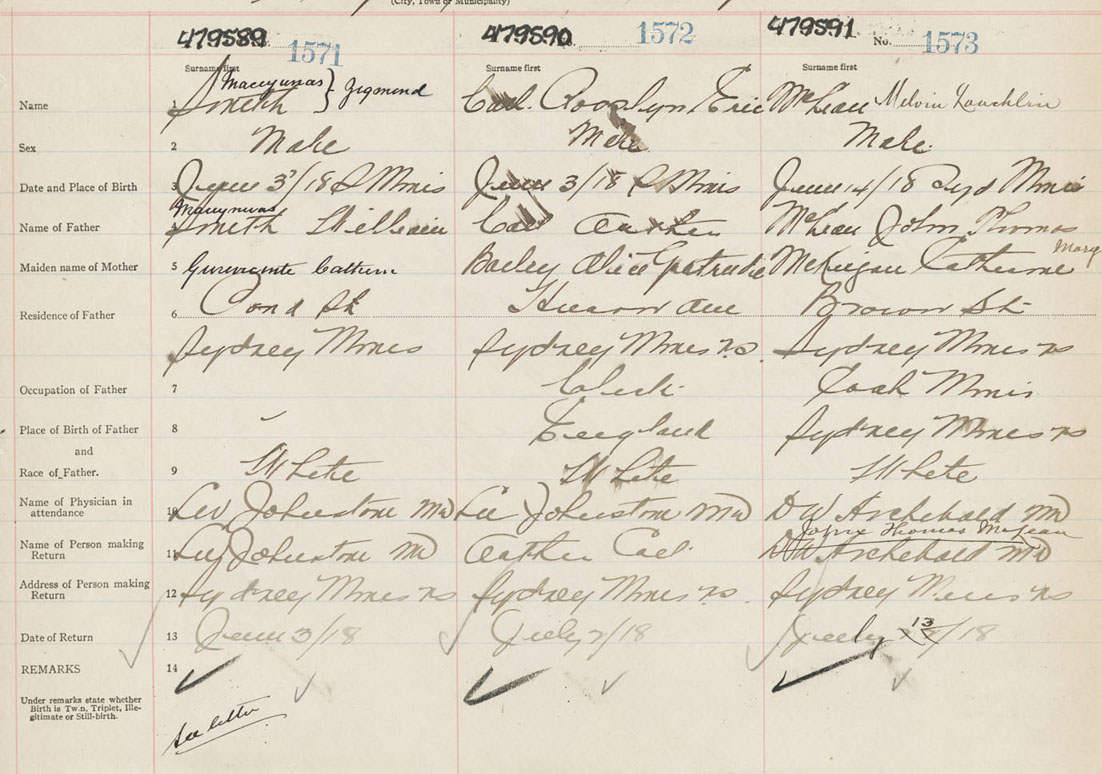 (City, Town or Municipality)
479589 479590 479591
No. 1571 No. 1572 No. 1573
Surname first Surname first Surname first
Macyunas
Name 1 Smith } Zigmond Carl. Rooslyn Eric McLean Melvin Lauchlin
Sex 2 Male Male Male
Date and Place of Birth 3 June 3/18 S Mines June 3/18 S Mines June 14/18 Syd Mines
Macyunas
Name of Father 4 Smith William Arthur McLean John Thomas
Mary
Maiden name of Mother 5 Catherine Bailey Alice Gertrude Catherine
Residence of Father 6 Cond St Huron Ave Brown St
Sydney Mines Sydney Mines N.S. Sydney Mines NS
Occupation of Father 7 Clerk Coal Mines
Place of Birth of Father 8 England Sydney Mines NS
and
Race of Father. 9 White White White
Name of Physician in attendance 10 Johnstone MD Johnstone MD D W Archibald MD
John Thomas McLean
Name of Person making Return 11 Johnstone MD Arthur D W Archibald MD
Address of Person making Return 12 Sydney Mines NS Sydney Mines NS Sydney Mines NS
Date of Return 13 June 3/18 July 2/18 July 13/18
REMARKS 14
Under remarks state whether
Birth is Twin, Triplet, Ille-
gitimate or Still-birth.
see letter